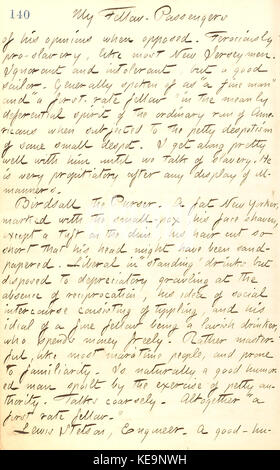 140
My Fellow-Passengers
of his opinions when opposed. Ferociously
pro-slavery, like most New Jerseymen.
Ignorant and intolerant, but a good
sailor. Generally spoken of as "a fine man"
and "a first-rate fellow" in the meanly
deferential spirit of the ordinary run of Ame-
ricans when subjected to the petty despotism
of some small despot. I get along pretty
well with him until we talk of slavery. He
is very propitiatory after any display of ill-
manners.
Birdsall the Purser. A fat New Yorker,
marked with the small-pox, his face shaven,
except a tuft on the chin, his hair cut so
short that his head might have been sand-
papered. Liberal in "standing" drinks but
disposed to depreciatory growling at the
absence of reciprocation, his idea of social
intercourse consisting of tippling, and his
ideal of a fine fellow being a lavish drinker,
who spends money freely. Rather master-
ful, like most marine people, and prone
to familiarity. Is naturally a good humor-
ed man spoilt by the exercise of petty au-
thority. Talks coarsely. Altogether "a
first rate fellow."
Lewis Stetson, Engineer. A good-hu-
alamy
KE9NWH